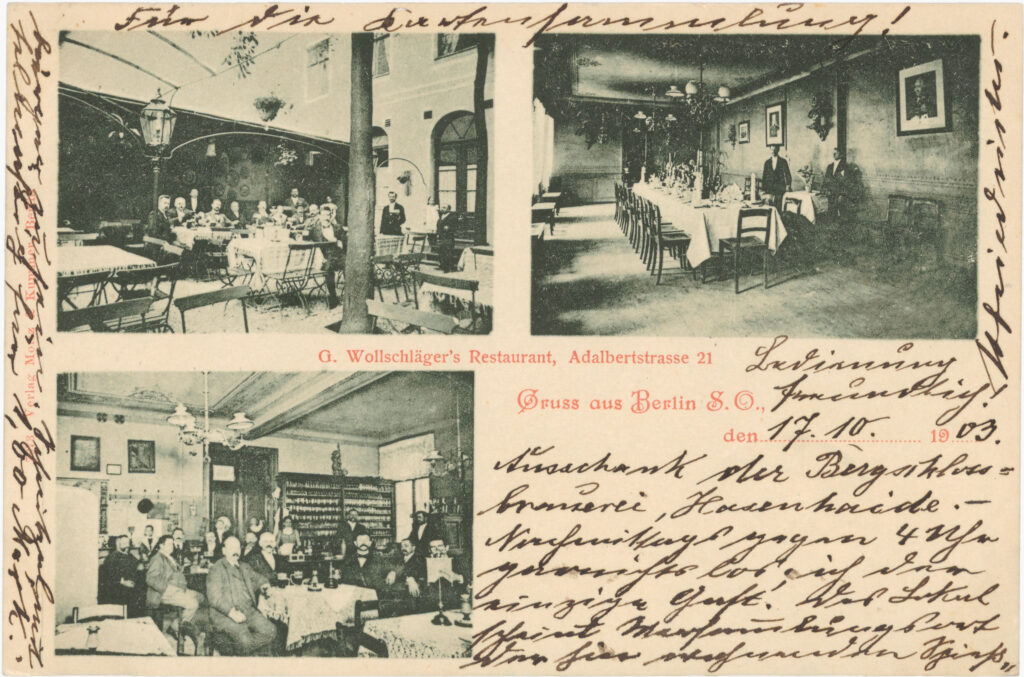 Für die Kartensammlung!
G. Wollschläger's Restaurant, Adalbertstrasse 21
Gruss aus Berlin S. O.,
Bedienung
freundlich!
den 17. 10. 1903.
Ausschank der Bergschloss=
brauerei, Hasenhaide. –
Nachmittags gegen 4 Uhr
garnichts los, ich der
einzige Gast! Das Lokal
scheint Versammlungsort
der hier wohnenden Spieß„
Verlag